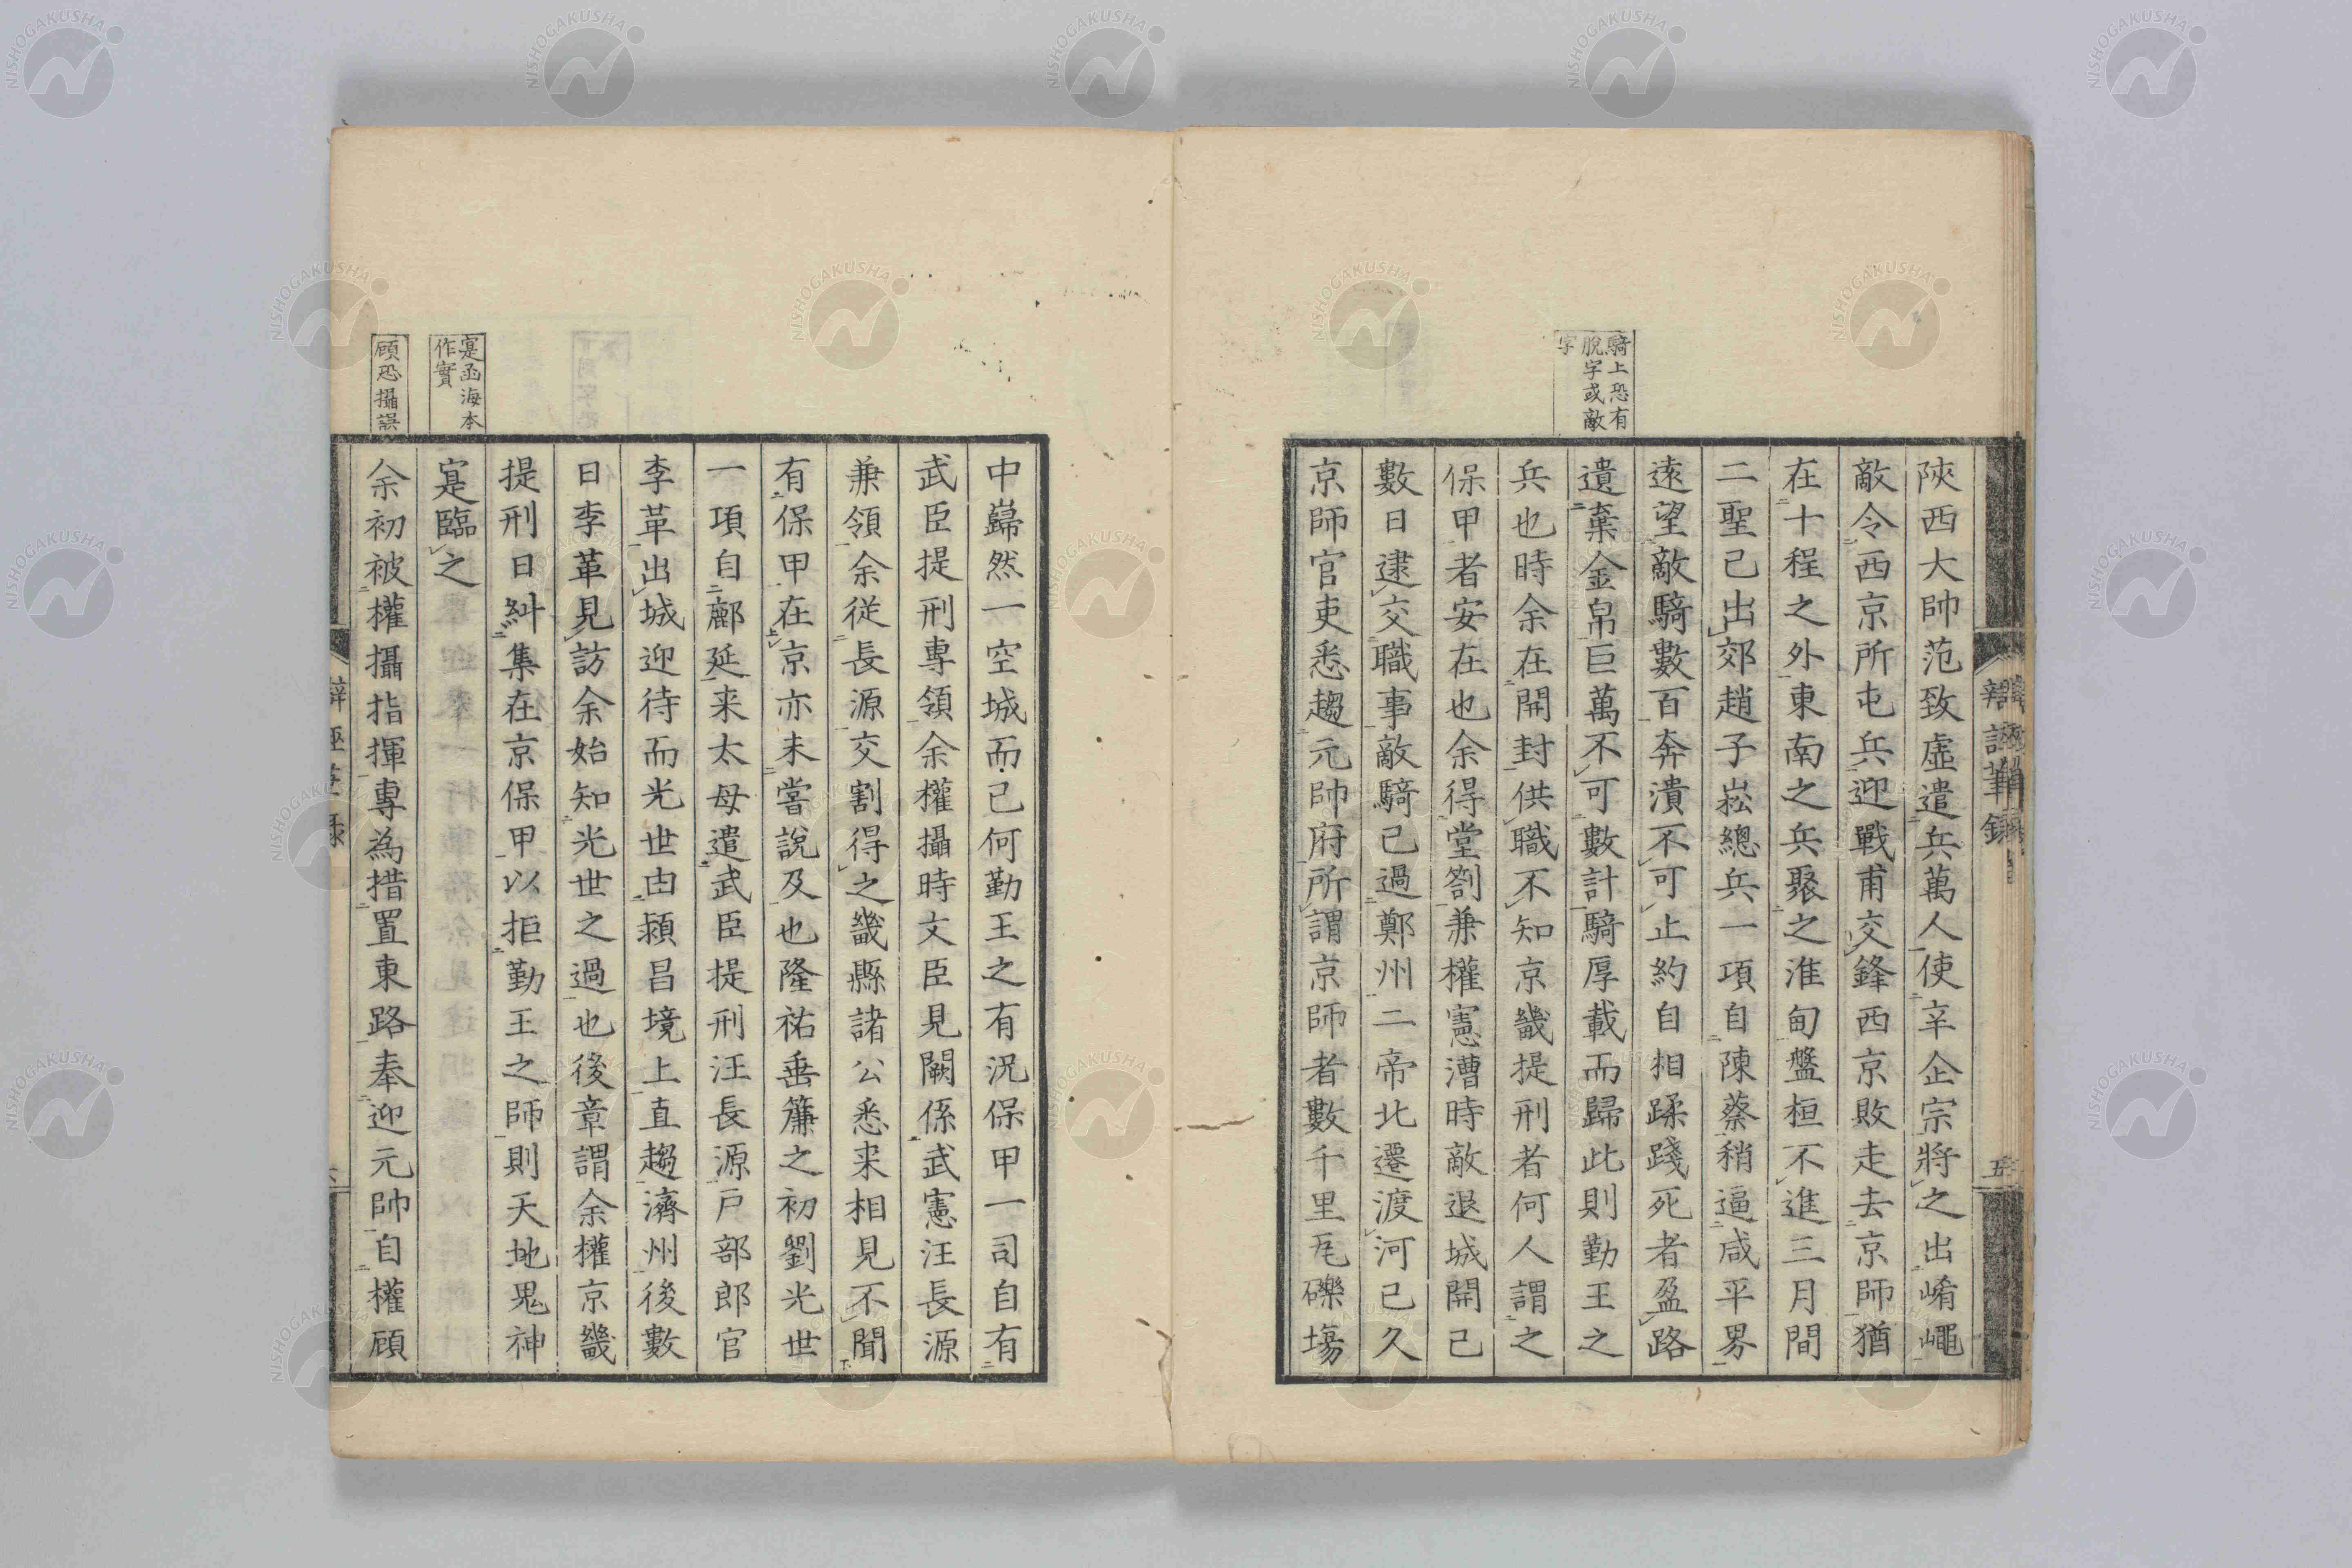 騎上恐有
脫字或敵
字
陝西大帥范致虛遣兵萬人使辛企宗將之出崤澠
敵令西京所屯兵迎戰甫交鋒西京敗走去京師猶
在十程之外東南之兵聚之淮甸盤桓不進三月間
二聖已出郊趙子崧總兵一項自陳蔡稍逼咸平界
遠望敵騎數百奔潰不可止約自相蹂踐死者盈路
遺棄金帛巨萬不可數計騎厚載而歸此則勤王之
兵也時余在開封供職不知京畿提刑者何人謂之
保甲者安在也余得堂劄兼權憲漕時敵退城開已
數日逮交職事敵騎已過鄭州二帝北遷渡河已久
京師官吏悉趨元帥府所謂京師者數千里瓦礫塲
辯誣筆錄
五
寔函海本
作實
顧恐攝誤
中巋然一空城而已何勤王之有況保甲一司自有
武臣提刑專領余權攝時文臣見闕係武憲汪長源
兼領余從長源交割得之畿縣諸公悉来相見不聞
有保甲在京亦未嘗說及也隆祐垂簾之初劉光世
一項自鄜延来太母遣武臣提刑汪長源戶部郎官
李革出城迎待而光世由潁昌境上直趨濟州後數
日李革見訪余始知光世之過也後章謂余權京畿
提刑日糾集在京保甲以拒勤王之師則天地鬼神
寔臨之
余初被權攝指揮專為措置東路奉迎元帥自權顧